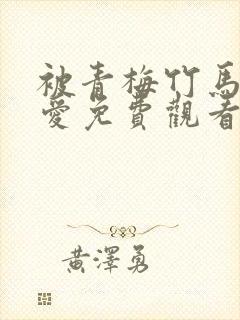 被青梅竹馬
愛免費觀看
黃澤勇